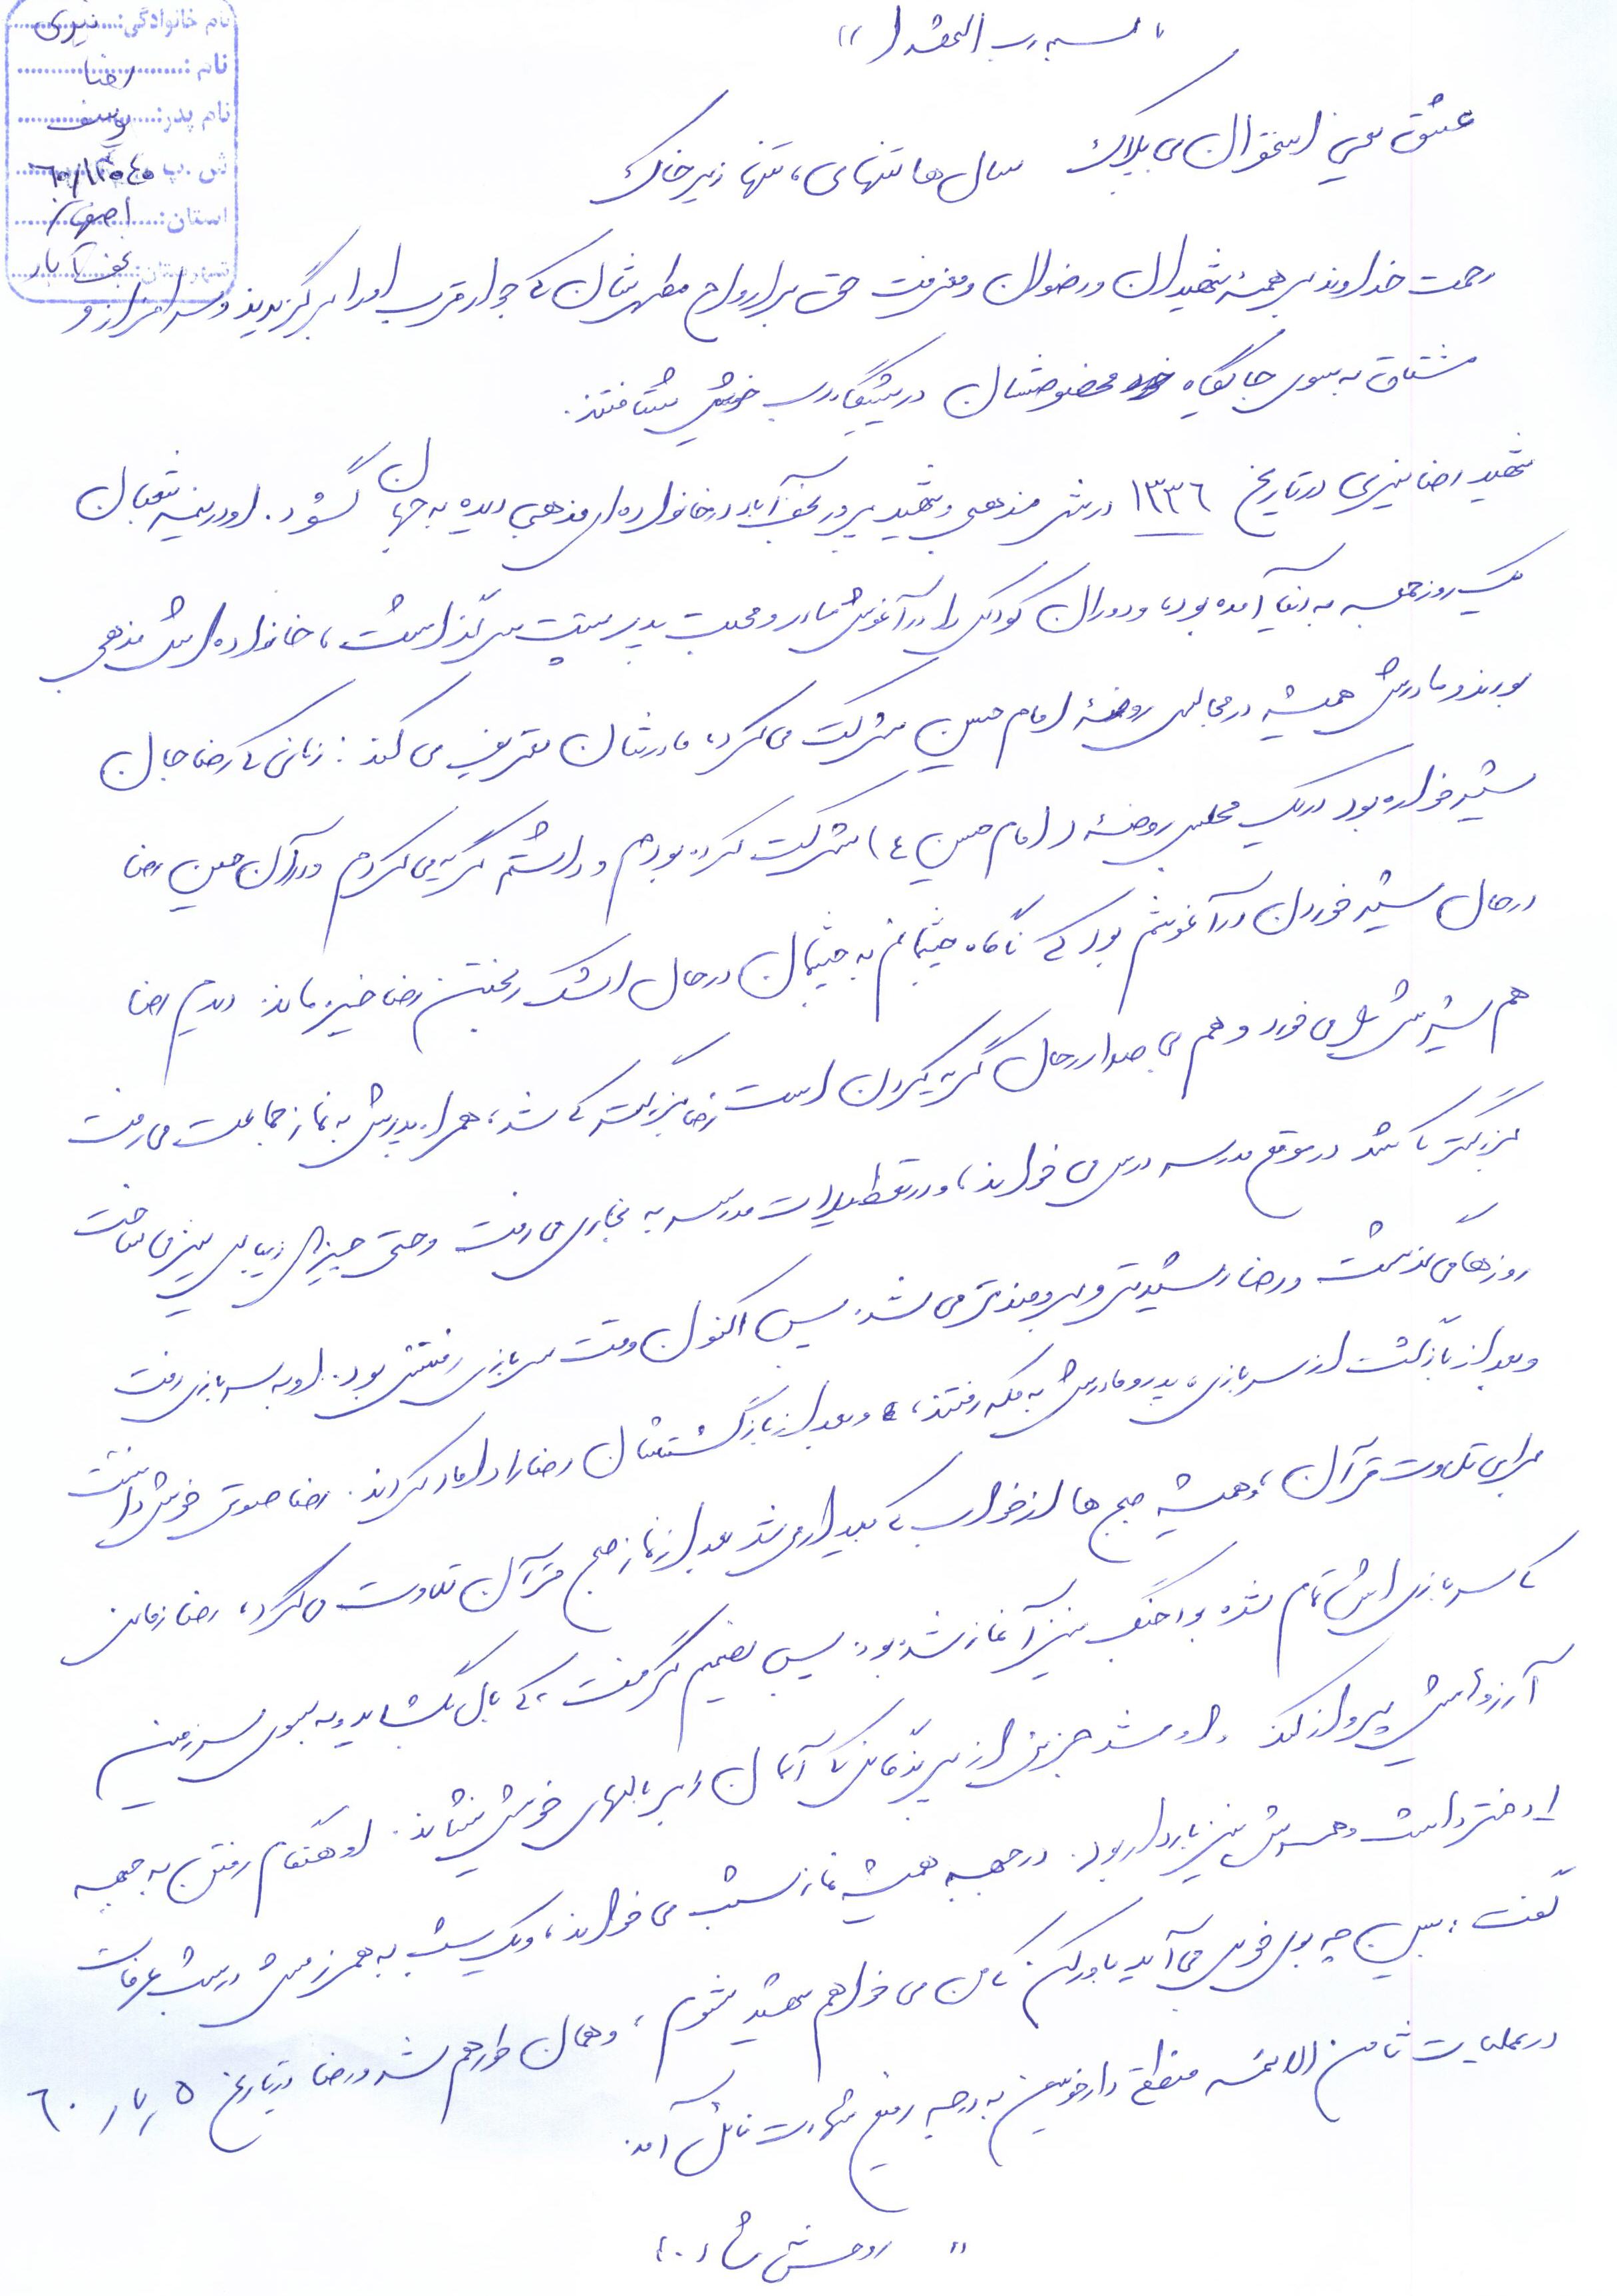 نام خانوادگی: نیری
نام: رضا
نام پدر: یوسف
ش.پ
استان: اصفهان
شهرستان: نجف آباد
" بسم رب الشهدا "
عشق یعنی استخوان بی پلاک سال ها تنهای، تنها زیر خاک
رحمت خداوند بر همۀ شهیدان و رضوان و مغفرت حق بر ارواح مطهرشان که جوار قرب او را برگزیدند و سرافراز و
مشتاق به سوی جایگاه مخصوصشان در پیشگاه رب خویش شتافتند.
شهید رضا نیری در تاریخ ١٣٣٦ در شهر مذهبی و شهید پرور نجف آباد در خانواده ای مذهبی دیده به جهان گشود. او در نیمه شعبان
یک روز جمعه به دنیا آمده بود، و دوران کودکی را در آغوش مادر و محبت پدر پشت سر گذاشت، خانواده اش مذهبی
بودند و مادرش همیشه در مجالس روضۀ امام حسین شرکت می کرد، مادرشان تعریف می کند: زمانی که رضا جان
شیرخواره بود در یک مجلس روضۀ (امام حسین ع) شرکت کرده بودم و داشتم گریه می کردم و در آن حین رضا
در حال شیر خوردن در آغوشم بود که ناگاه چشمانم به چشمان در حال اشک ریختن رضا خیره ماند دیدم رضا
هم شیرش را می خورد و هم بی صدا در حال گریه کردن است رضا بزرگتر که شد، همراه پدرش به نماز جماعت می رفت
بزرگتر که شد در موقع مدرسه درس می خواند، و در تعطیلات مدرسه به نجاری می رفت و حتی چیزهای زیبایی نیز می ساخت
روزها می گذشت و رضا رشیدتر و برومندتر می شد. پس اکنون وقت سربازی رفتنش بود. او به سربازی رفت
و بعد از بازگشت از سربازی، پدر و مادرش به مکه رفتند، و بعد از بازگشتشان رضا را داماد کردند. رضا صوتی خوش داشت
برای تلاوت قرآن، و همیشه صبح ها از خواب که بیدار می شد بعد از نماز صبح قرآن تلاوت می کرد، رضا زمانی
که سربازی اش تمام شده بود جنگ نیز آغاز شده بود. پس تصمیم گرفت، که بال بگشاید و به سوی سرزمین
آرزوهایش پرواز کند و او شد جزیی از پرندگانی که آسمان را بر بالهای خویش نشاند. او هنگام رفتن به جبهه
١ دختر داشت و همسرش نیز باردار بود. در جبهه همیشه نماز شب می خواند، و یک شب به همرزمش در شب عرفات
گفت: ببین چه بوی خوبی می آید باور کن که من می خواهم شهید شوم، و همان طور هم شد و رضا در تاریخ ٥ر٧ر٦٠
در عملیات ثامن الائمه منطقه دارخوین به درجه رفیع شهادت نائل آمد.
" روحش شاد "